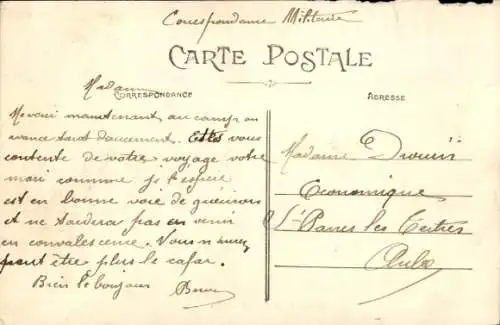 Correspondance Militaire
CARTE POSTALE
Madame
CORRESPONDANCE
ADRESSE
Me voici maintenant au camp on
avance tout doucement. Etes vous
contente de votre voyage votre
mari comme je l'espère
est en bonne voie de guérison
et ne tardera pas en venir
en convalescence. Vous n'aurez
peut être plus le cafar.
Bien le bonjour
Madame Drouin
Economique
St Parres les Tertres
Aube